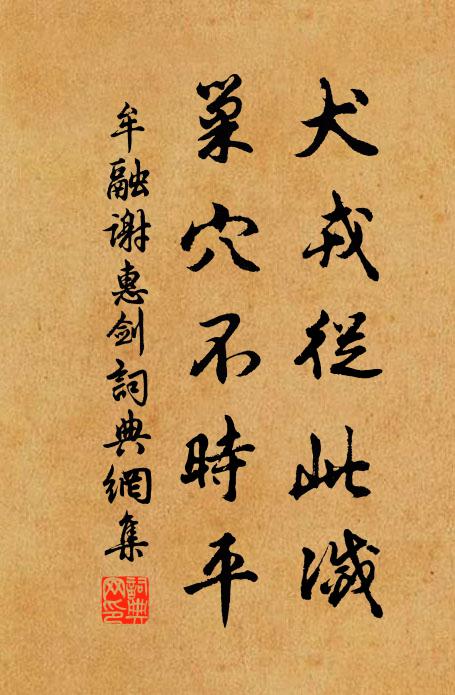 犬戎從此滅
巢穴不時平
牟融謝惠劍詞典網集
詞典网印